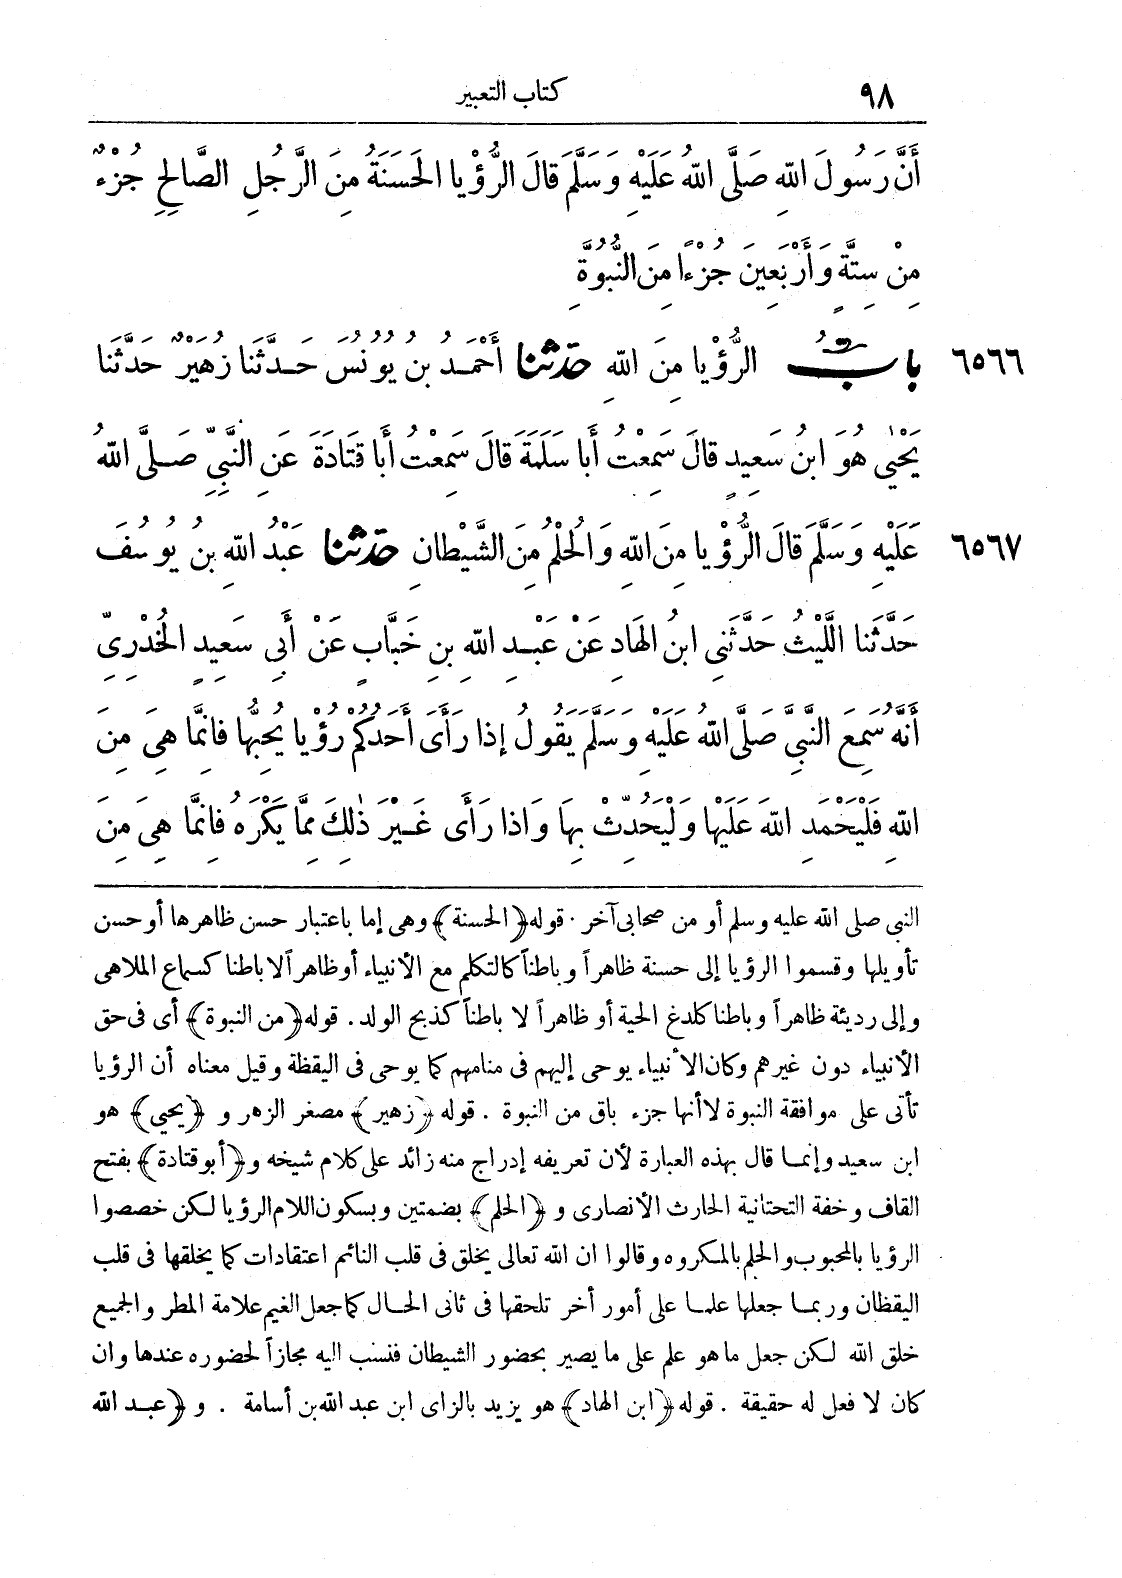 ٩٨
كتاب التعبير
أَنَّ رَسُولَ اللهِ صَلَّى اللهُ عَلَيْهِ وَسَلَّمَ قالَ الرُّؤْيا الحَسَنَةُ مِنَ الرَّجُلِ الصَّالِحِ جُزْءٌ
مِنْ سِتَّةٍ وَأَرْبَعِينَ جُزْءًا مِنَ النُّبُوَّةِ
٦٥٦٦ بابُ الرُّؤْيا مِنَ اللهِ حدّثنا أَحْمَدُ بنُ يُونُسَ حَدَّثَنا زُهَيْرٌ حَدَّثَنا
يَحْيَى هُوَ ابنُ سَعِيدٍ قالَ سَمِعْتُ أَبا سَلَمَةَ قالَ سَمِعْتُ أَبا قَتادَةَ عَنِ النَّبِيِّ صَلَّى اللهُ
٦٥٦٧ عَلَيْهِ وَسَلَّمَ قالَ الرُّؤْيا مِنَ اللهِ وَالحُلْمُ مِنَ الشَّيْطانِ حدّثنا عَبْدُ اللهِ بنُ يُوسُفَ
حَدَّثَنا اللَّيْثُ حَدَّثَنِي ابنُ الهَادِ عَنْ عَبْدِ اللهِ بنِ خَبَّابٍ عَنْ أَبِي سَعِيدٍ الخُدْرِيِّ
أَنَّهُ سَمِعَ النَّبِيَّ صَلَّى اللهُ عَلَيْهِ وَسَلَّمَ يَقُولُ إذا رَأَى أَحَدُكُمْ رُؤْيا يُحِبُّها فَانَّما هِيَ مِنَ
اللهِ فَلْيَحْمَدِ اللهَ عَلَيْها وَلْيُحَدِّثْ بِهَا وَاذا رَأَى غَيْرَ ذٰلِكَ مِمَّا يَكْرَهُ فَانَّما هِيَ مِنَ
النبى صلى الله عليه وسلم أو من صحابى آخر . قوله ﴿الحسنة﴾ وهى إما باعتبار حسن ظاهرها أو حسن
تأويلها وقسموا الرؤيا إلى حسنة ظاهراً وباطناً كالتكلم مع الأنبياء أو ظاهراً لا باطنا كسماع الملاهى
وإلى رديئة ظاهراً وباطنا كلدغ الحية أو ظاهراً لا باطناً كذبح الولد . قوله ﴿من النبوة﴾ أى فى حق
الأنبياء دون غيرهم وكان الأنبياء يوحى إليهم فى منامهم كما يوحى فى اليقظة وقيل معناه أن الرؤيا
تأتى على موافقة النبوة لاأنها جزء باق من النبوة . قوله ﴿زهير﴾ مصغر الزهر و ﴿يحيى﴾ هو
ابن سعيد وإنما قال بهذه العبارة لأن تعريفه إدراج منه زائد على كلام شيخه و ﴿أبو قتادة﴾ بفتح
القاف وخفة التحتانية الحارث الأنصارى و ﴿الحلم﴾ بضمتين وبسكون اللام الرؤيا لكن خصصوا
الرؤيا بالمحبوب والحلم بالمكروه وقالوا ان الله تعالى يخلق فى قلب النائم اعتقادات كما يخلقها فى قلب
اليقظان وربما جعلها علما على أمور أخر تلحقها فى ثانى الحال كما جعل الغيم علامة المطر والجميع
خلق الله لكن جعل ما هو علم على ما يصير بحضور الشيطان فنسب اليه مجازاً لحضوره عندها وان
كان لا فعل له حقيقة . قوله ﴿ابن الهاد﴾ هو يزيد بالزاى ابن عبد الله بن أسامة . و ﴿عبد الله